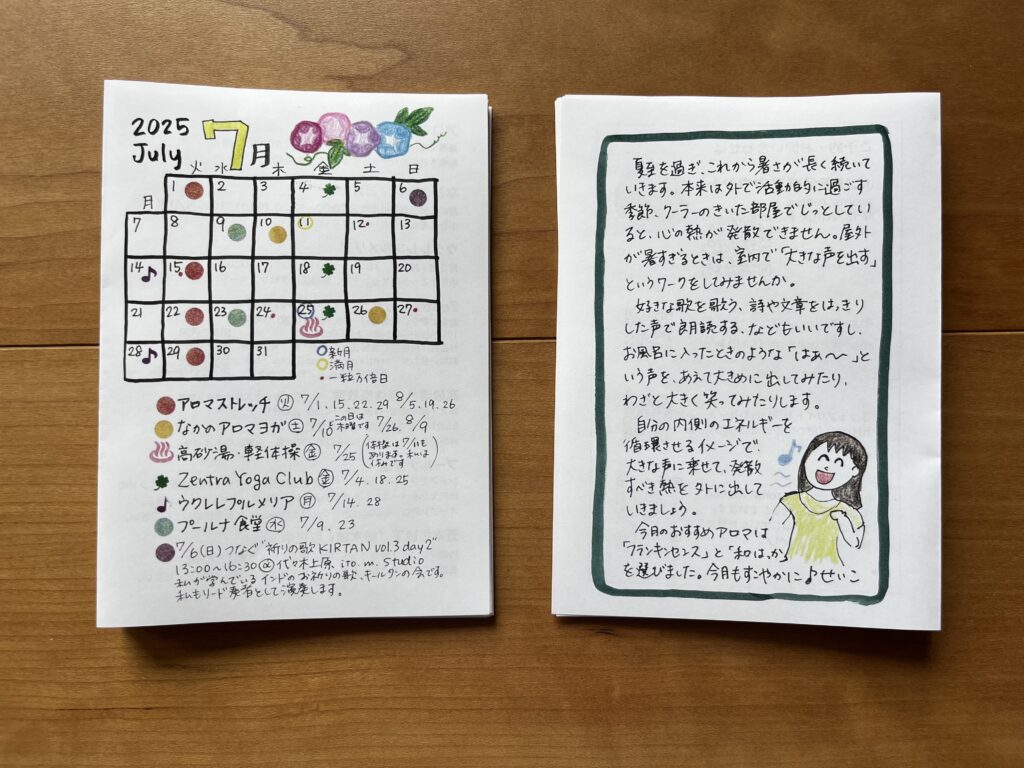 2025
July
7月
火 水 木 金 土 日
月
1 2 3 4 5 6
7 8 9 10 11 12 13
14 15 16 17 18 19 20
21 22 23 24 25 26 27
28 29 30 31
新月
満月
一粒万倍日
アロマストレッチ 火 7/1.15.22.29 8/5.19.26
なかのアロマヨガ 土 7/10 この日は木曜です 7/26. 8/9
高砂湯・軽体操 金 7/25 (体操は7/11も
あります。私は
休みです)
Zentra Yoga Club 金 7/4.18.25
ウクレレプルメリア 月 7/14.28
プールナ食堂 水 7/9.23
7/6(日)つなぐ“祈りの歌KIRTAN vol.3 day2”
13:00〜16:30 代々木上原、ito.m.studio
私が学んでいるインドのお祈りの歌、キールタンの会です。
私もリード奏者として演奏します。
夏至を過ぎ、これから暑さが長く続いて
いきます。本来は外で活動的に過ごす
季節、クーラーのきいた部屋でじっとしてい
ると、心の熱が発散できません。屋外
が暑すぎるときは、室内で「大きな声を出す」
というワークをしてみませんか。
好きな歌を歌う、詩や文章をはっきり
した声で朗読する、などもいいですし、
お風呂に入ったときのような「はぁ〜〜」と
いう声を、あえて大きめに出してみたり、
わざと大きく笑ってみたりします。
自分の内側のエネルギーを
循環させるイメージで、
大きな声に乗せて、発散
すべき熱を外に出して
いきましょう。
今月のおすすめアロマは
「フランキンセンス」と「和はっか」
を選びました。今月もすこやかに♪せいこ